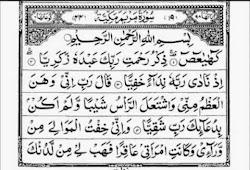 سُوْرَةُ مَرْيَمَ مَكِّيَّةٌ
بِسْمِ اللّٰهِ الرَّحْمٰنِ الرَّحِيْمِ
كٓهٰيٰعٓصٓ ۝ ذِكْرُ رَحْمَتِ رَبِّكَ عَبْدَهٗ زَكَرِيَّا ۝
اِذْ نَادٰى رَبَّهٗ نِدَآءً خَفِيًّا ۝ قَالَ رَبِّ اِنِّيْ وَهَنَ
الْعَظْمُ مِنِّيْ وَاشْتَعَلَ الرَّاْسُ شَيْبًا وَّلَمْ اَكُنْۢ
بِدُعَآئِكَ رَبِّ شَقِيًّا ۝ وَاِنِّيْ خِفْتُ الْمَوَالِيَ مِنْ
وَّرَآءِيْ وَكَانَتِ امْرَاَتِيْ عَاقِرًا فَهَبْ لِيْ مِنْ لَّدُنْكَ